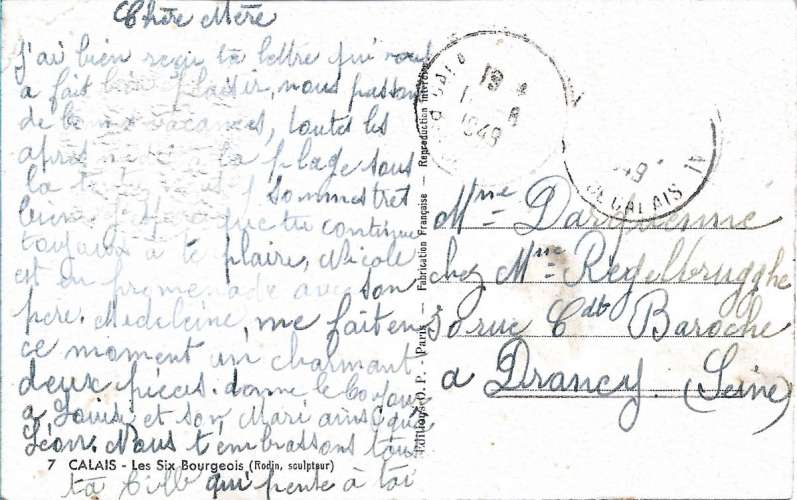 Chère Mère
J'ai bien reçu ta lettre qui nous
a fait bien plaisir, nous passons
de bonnes vacances, toutes les
après midi à la plage sous
la tente nous y sommes très
bien que tu continue
toujours à te plaire, Nicole
est en promenade avec son
père. Madeleine, me fait en
ce moment un charmant
deux pièces. donne le bonjour
a Louise et son Mari ainsi qu'à
Léon. Nous t'embrassons tous
ta fille qui pense à toi
7 CALAIS - Les Six Bourgeois (Rodin, sculpteur)
Editions O. P. - Paris - Fabrication Française - Reproduction interdite
1949
49
DE CALAIS
Mme Darquenne
chez Mme Regelbrugghe
30 rue Cdt Baroche
a Drancy. (Seine)